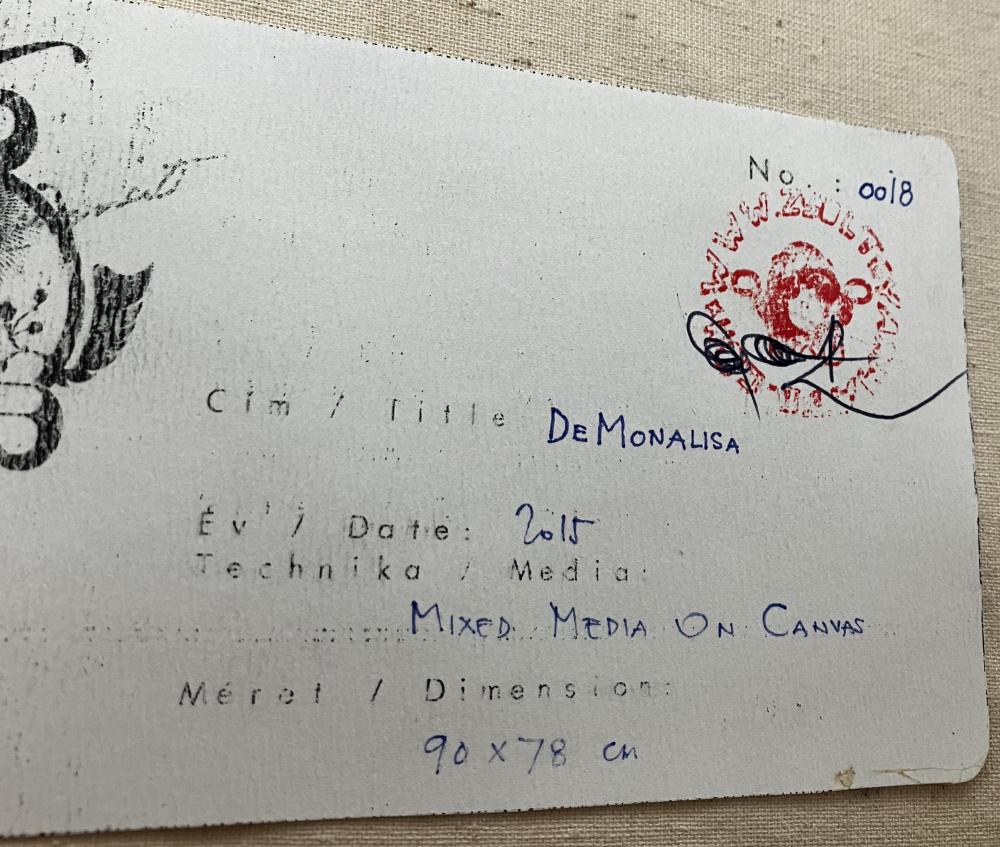 No.: 0018
Cím / Title DeMonalisa
Év / Date: 2015
Technika / Media:
Mixed Media On Canvas
Méret / Dimension:
90 x 78 cm